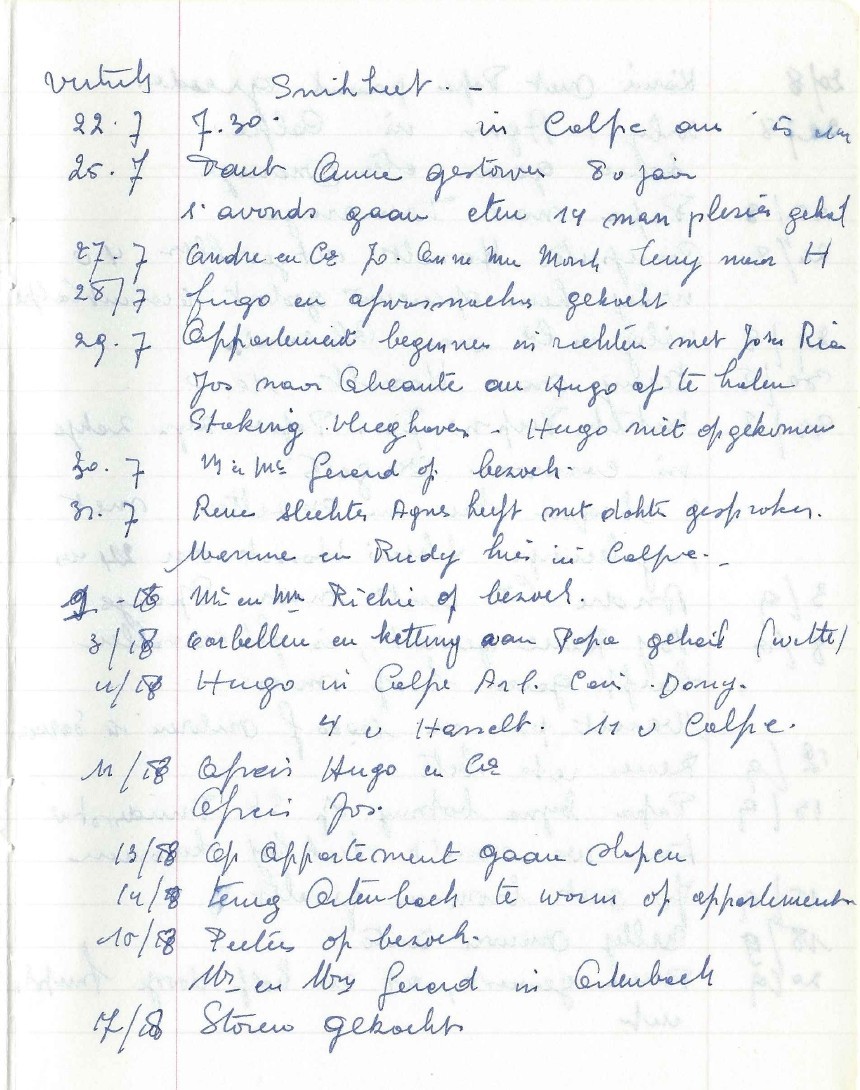 Vertrek Snikheet. -
22.7 7.30. in Calpe om 15 uur
25.7 Tante Anne gestorven 80 jaar
s'avonds gaan eten 14 man plesier gehad
27.7 Andre en Co Jo. Anne terug naar H
28/7 frigo en afwasmachin gekocht
29.7 Appartement beginnen in richten met Jos Ria
Jos naar Alicante om Hugo af te halen
Staking vlieghaven. Hugo niet opgekomen
30.7 Mr Gerard op bezoek.
31.7 Rene slechter Agnes heeft met dokter gesproken.
en Rudy hier in Calpe. -
Mr en Mm Richie op bezoek.
3/8 oorbellen en ketting van Papa gehad (witte)
4/8 Hugo in Calpe
4 u Hasselt. 11 u Calpe.
11/8 Afreis Hugo en Co
Afreis Jos.
13/8 Op Appartement gaan slapen
14/8 terug Ortenbach te warm op appartement
Peeters op bezoek.
Mr en Mrs Gerard in Ortenbach
17/8 Storen gekocht